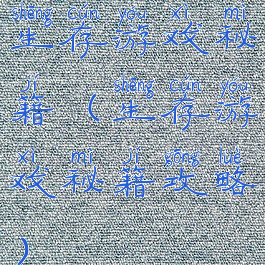 shēng cún yóu xì mì
生存游戏秘
jí shēng cún yóu
籍(生存游
xì mì jí gōng lüè
戏秘籍攻略
)